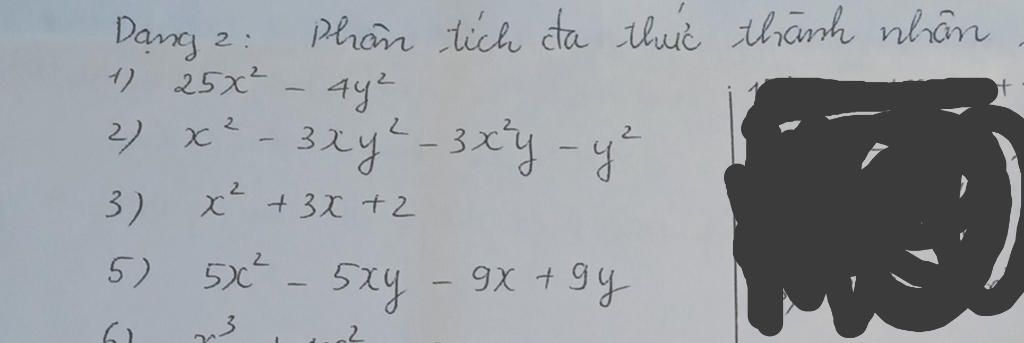 Dạng 2: Phân tích đa thức thành nhân
1) 25x² - 4y²
2) x² - 3xy² - 3x²y - y²
3) x² + 3x + 2
5) 5x² - 5xy - 9x + 9y